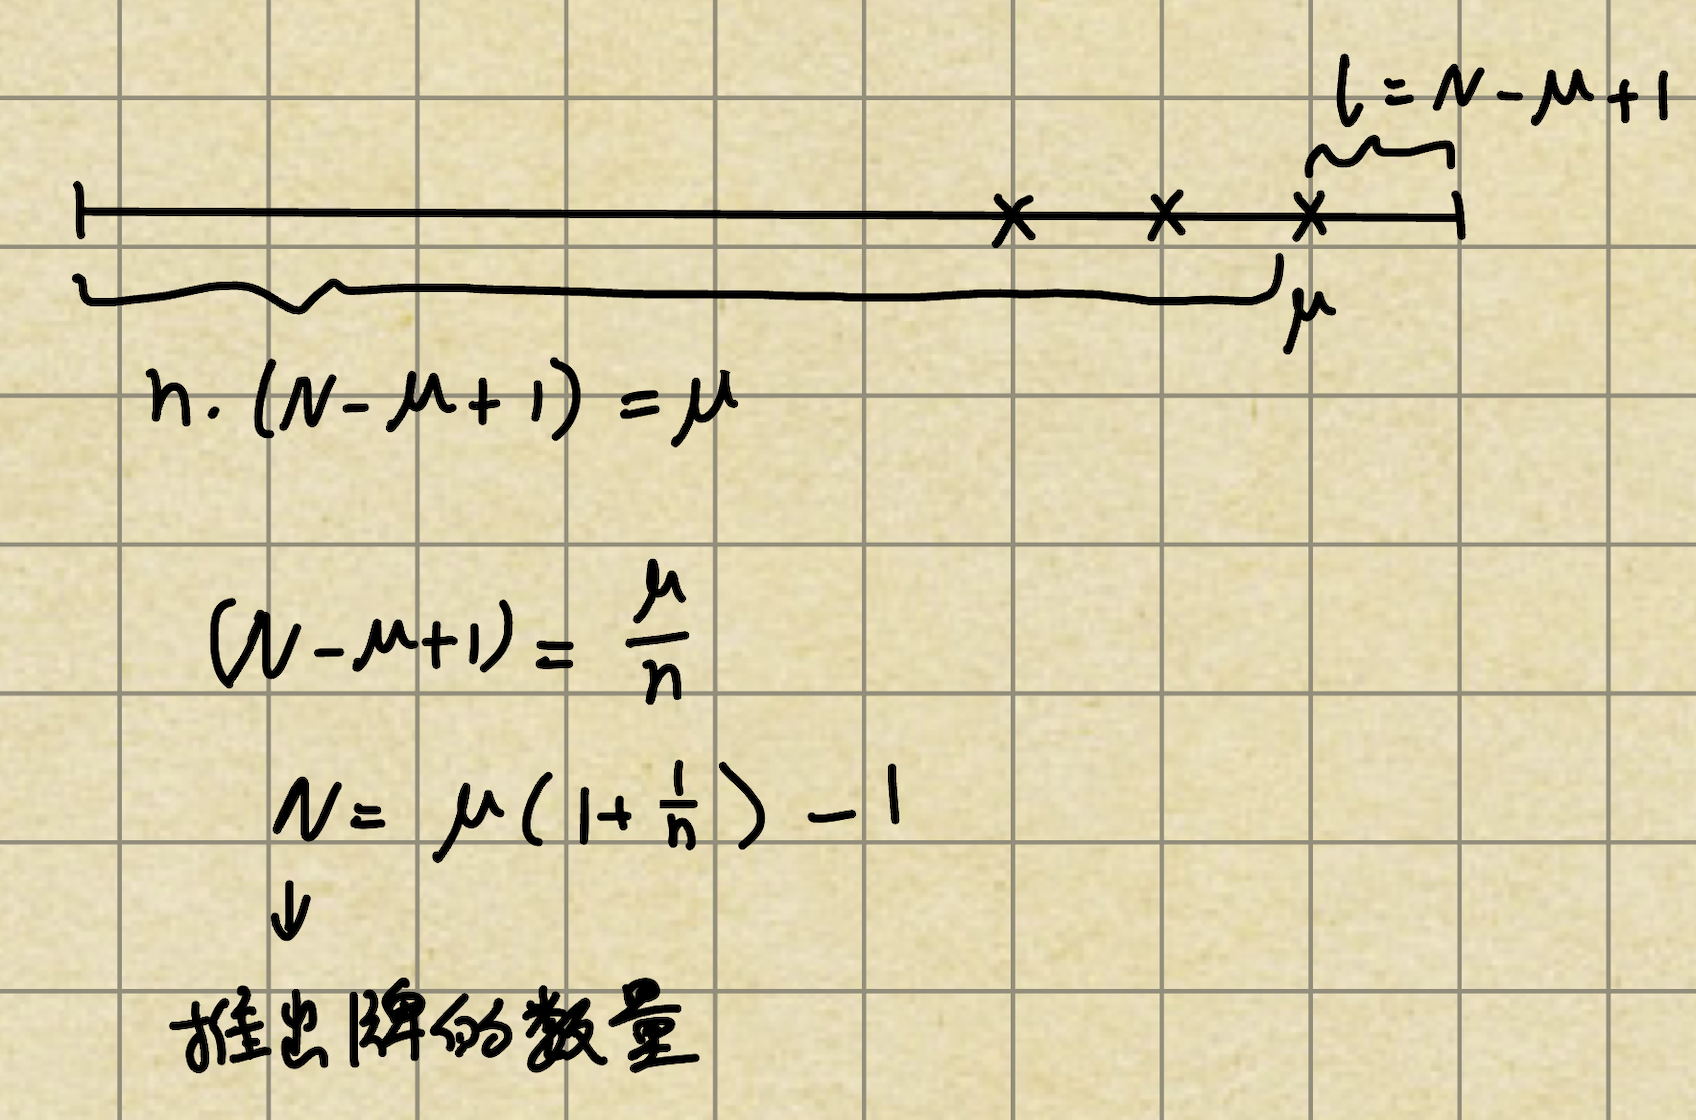 l = N - μ + 1
μ
n. (N - μ + 1) = μ
(N - μ + 1) = μ/n
N = μ(1 + 1/n) - 1
↓
推出牌的数量